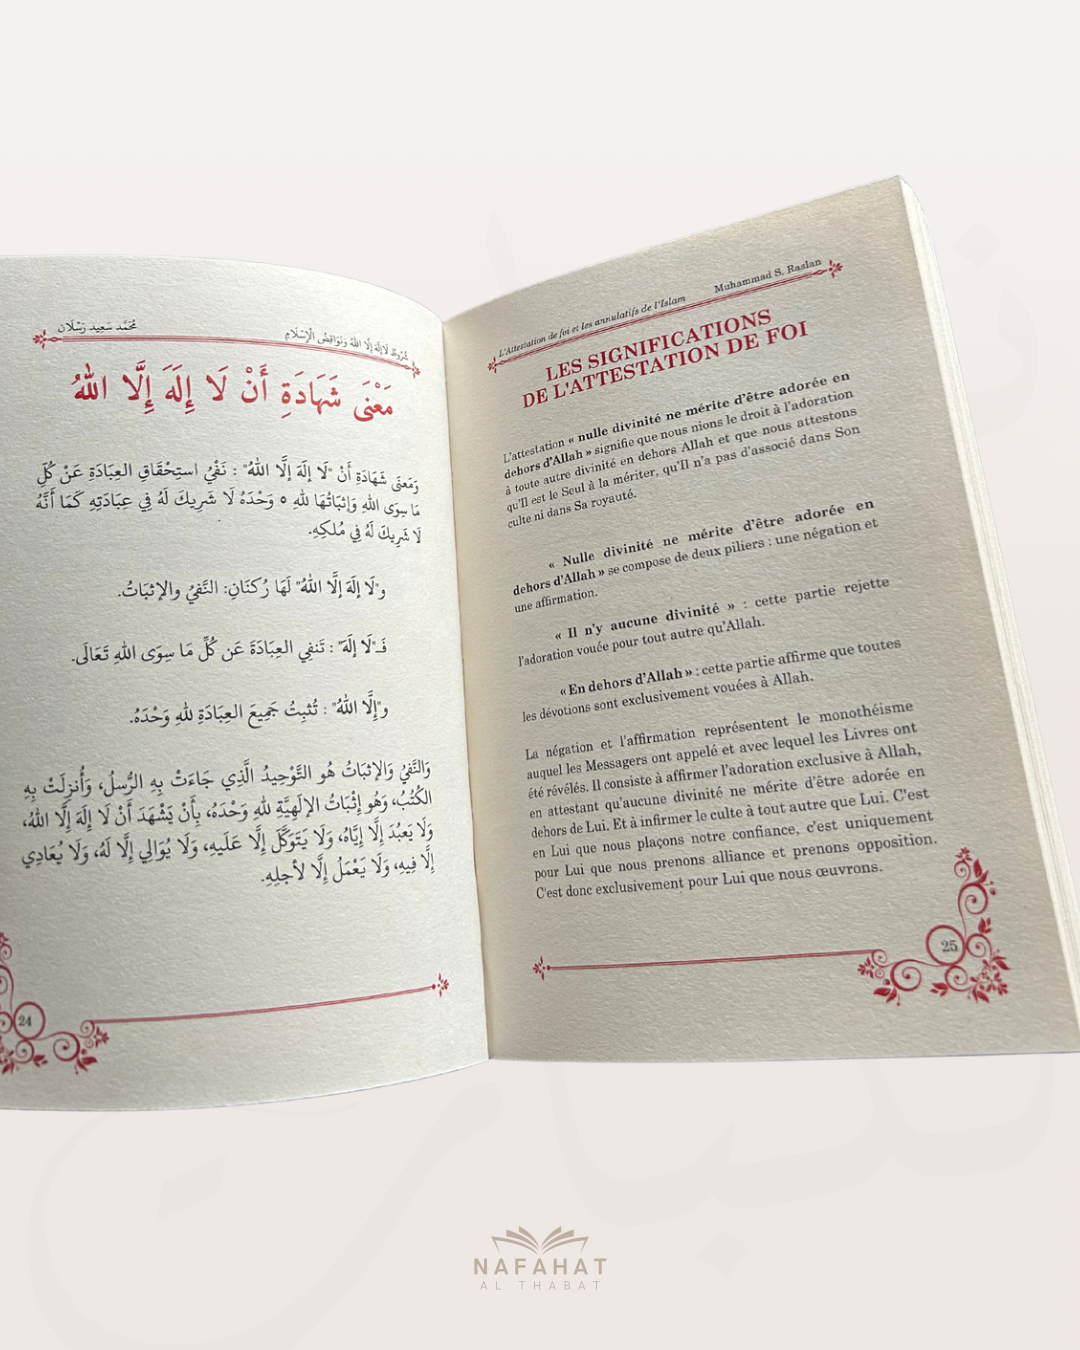 مُحَمَّد سَعِيد رَسْلَان
شُرُوطُ لَا إِلَهَ إِلَّا اللهُ وَنَوَاقِضُ الْإِسْلَامِ
مَعْنَى شَهَادَةِ أَنْ لَا إِلَهَ إِلَّا اللهُ
وَمَعنَى شَهَادَةِ أَنْ "لَا إِلَهَ إلَّا اللهُ" : نَفْيُ استِحْقَاقِ العِبَادَةِ عَنْ كُلِّ
مَا سِوَى اللهِ وَإِثبَاتُهَا للهِ ٥ وَحْدَهُ لَا شَرِيكَ لَهُ فِي عِبَادَتِهِ كَمَا أَنَّهُ
لَا شَرِيكَ لَهُ فِي مُلكِهِ.
و"لَا إِلَهَ إلَّا اللهُ" لَهَا رُكنَانِ: النَّفيُ والإِثبَاتُ.
فَـ"لَا إِلَهَ" : تَنفِي العِبَادَةَ عَن كُلِّ مَا سِوَى اللهِ تَعَالَى.
و"إِلَّا اللهُ" : تُثبِتُ جَمِيعَ العِبَادَةِ للهِ وَحْدَهُ.
وَالنَّفيُ وَالإِثبَاتُ هُو التَّوْحِيدُ الَّذِي جَاءَتْ بِهِ الرُّسلُ، وَأُنزِلَتْ بِهِ
الكُتُبُ، وَهُو إِثْبَاتُ الإِلَهِيَّةِ للهِ وَحْدَهُ، بِأَنْ يَشْهَدَ أَنْ لَا إِلَهَ إِلَّا اللهُ،
وَلَا يَعبُدَ إِلَّا إِيَّاهُ، وَلَا يَتَوَكَّلَ إِلَّا عَلَيهِ، وَلَا يُوَالِي إِلَّا لَهُ، وَلَا يُعَادِي
إِلَّا فِيهِ، وَلَا يَعْمَلُ إِلَّا لأجلِهِ.
24
L'Attestation de foi et les annulatifs de l'Islam
Muhammad S. Raslan
LES SIGNIFICATIONS
DE L'ATTESTATION DE FOI
L'attestation « nulle divinité ne mérite d'être adorée en
dehors d'Allah » signifie que nous nions le droit à l'adoration
à toute autre divinité en dehors Allah et que nous attestons
qu'Il est le Seul à la mériter, qu'Il n'a pas d'associé dans Son
culte ni dans Sa royauté.
« Nulle divinité ne mérite d'être adorée en
dehors d'Allah » se compose de deux piliers : une négation et
une affirmation.
« Il n'y aucune divinité » : cette partie rejette
l'adoration vouée pour tout autre qu'Allah.
« En dehors d'Allah » : cette partie affirme que toutes
les dévotions sont exclusivement vouées à Allah.
La négation et l'affirmation représentent le monothéisme
auquel les Messagers ont appelé et avec lequel les Livres ont
été révélés. Il consiste à affirmer l'adoration exclusive à Allah,
en attestant qu'aucune divinité ne mérite d'être adorée en
dehors de Lui. Et à infirmer le culte à tout autre que Lui. C'est
en Lui que nous plaçons notre confiance, c'est uniquement
pour Lui que nous prenons alliance et prenons opposition.
C'est donc exclusivement pour Lui que nous œuvrons.
25
NAFAHAT
AL THABAT